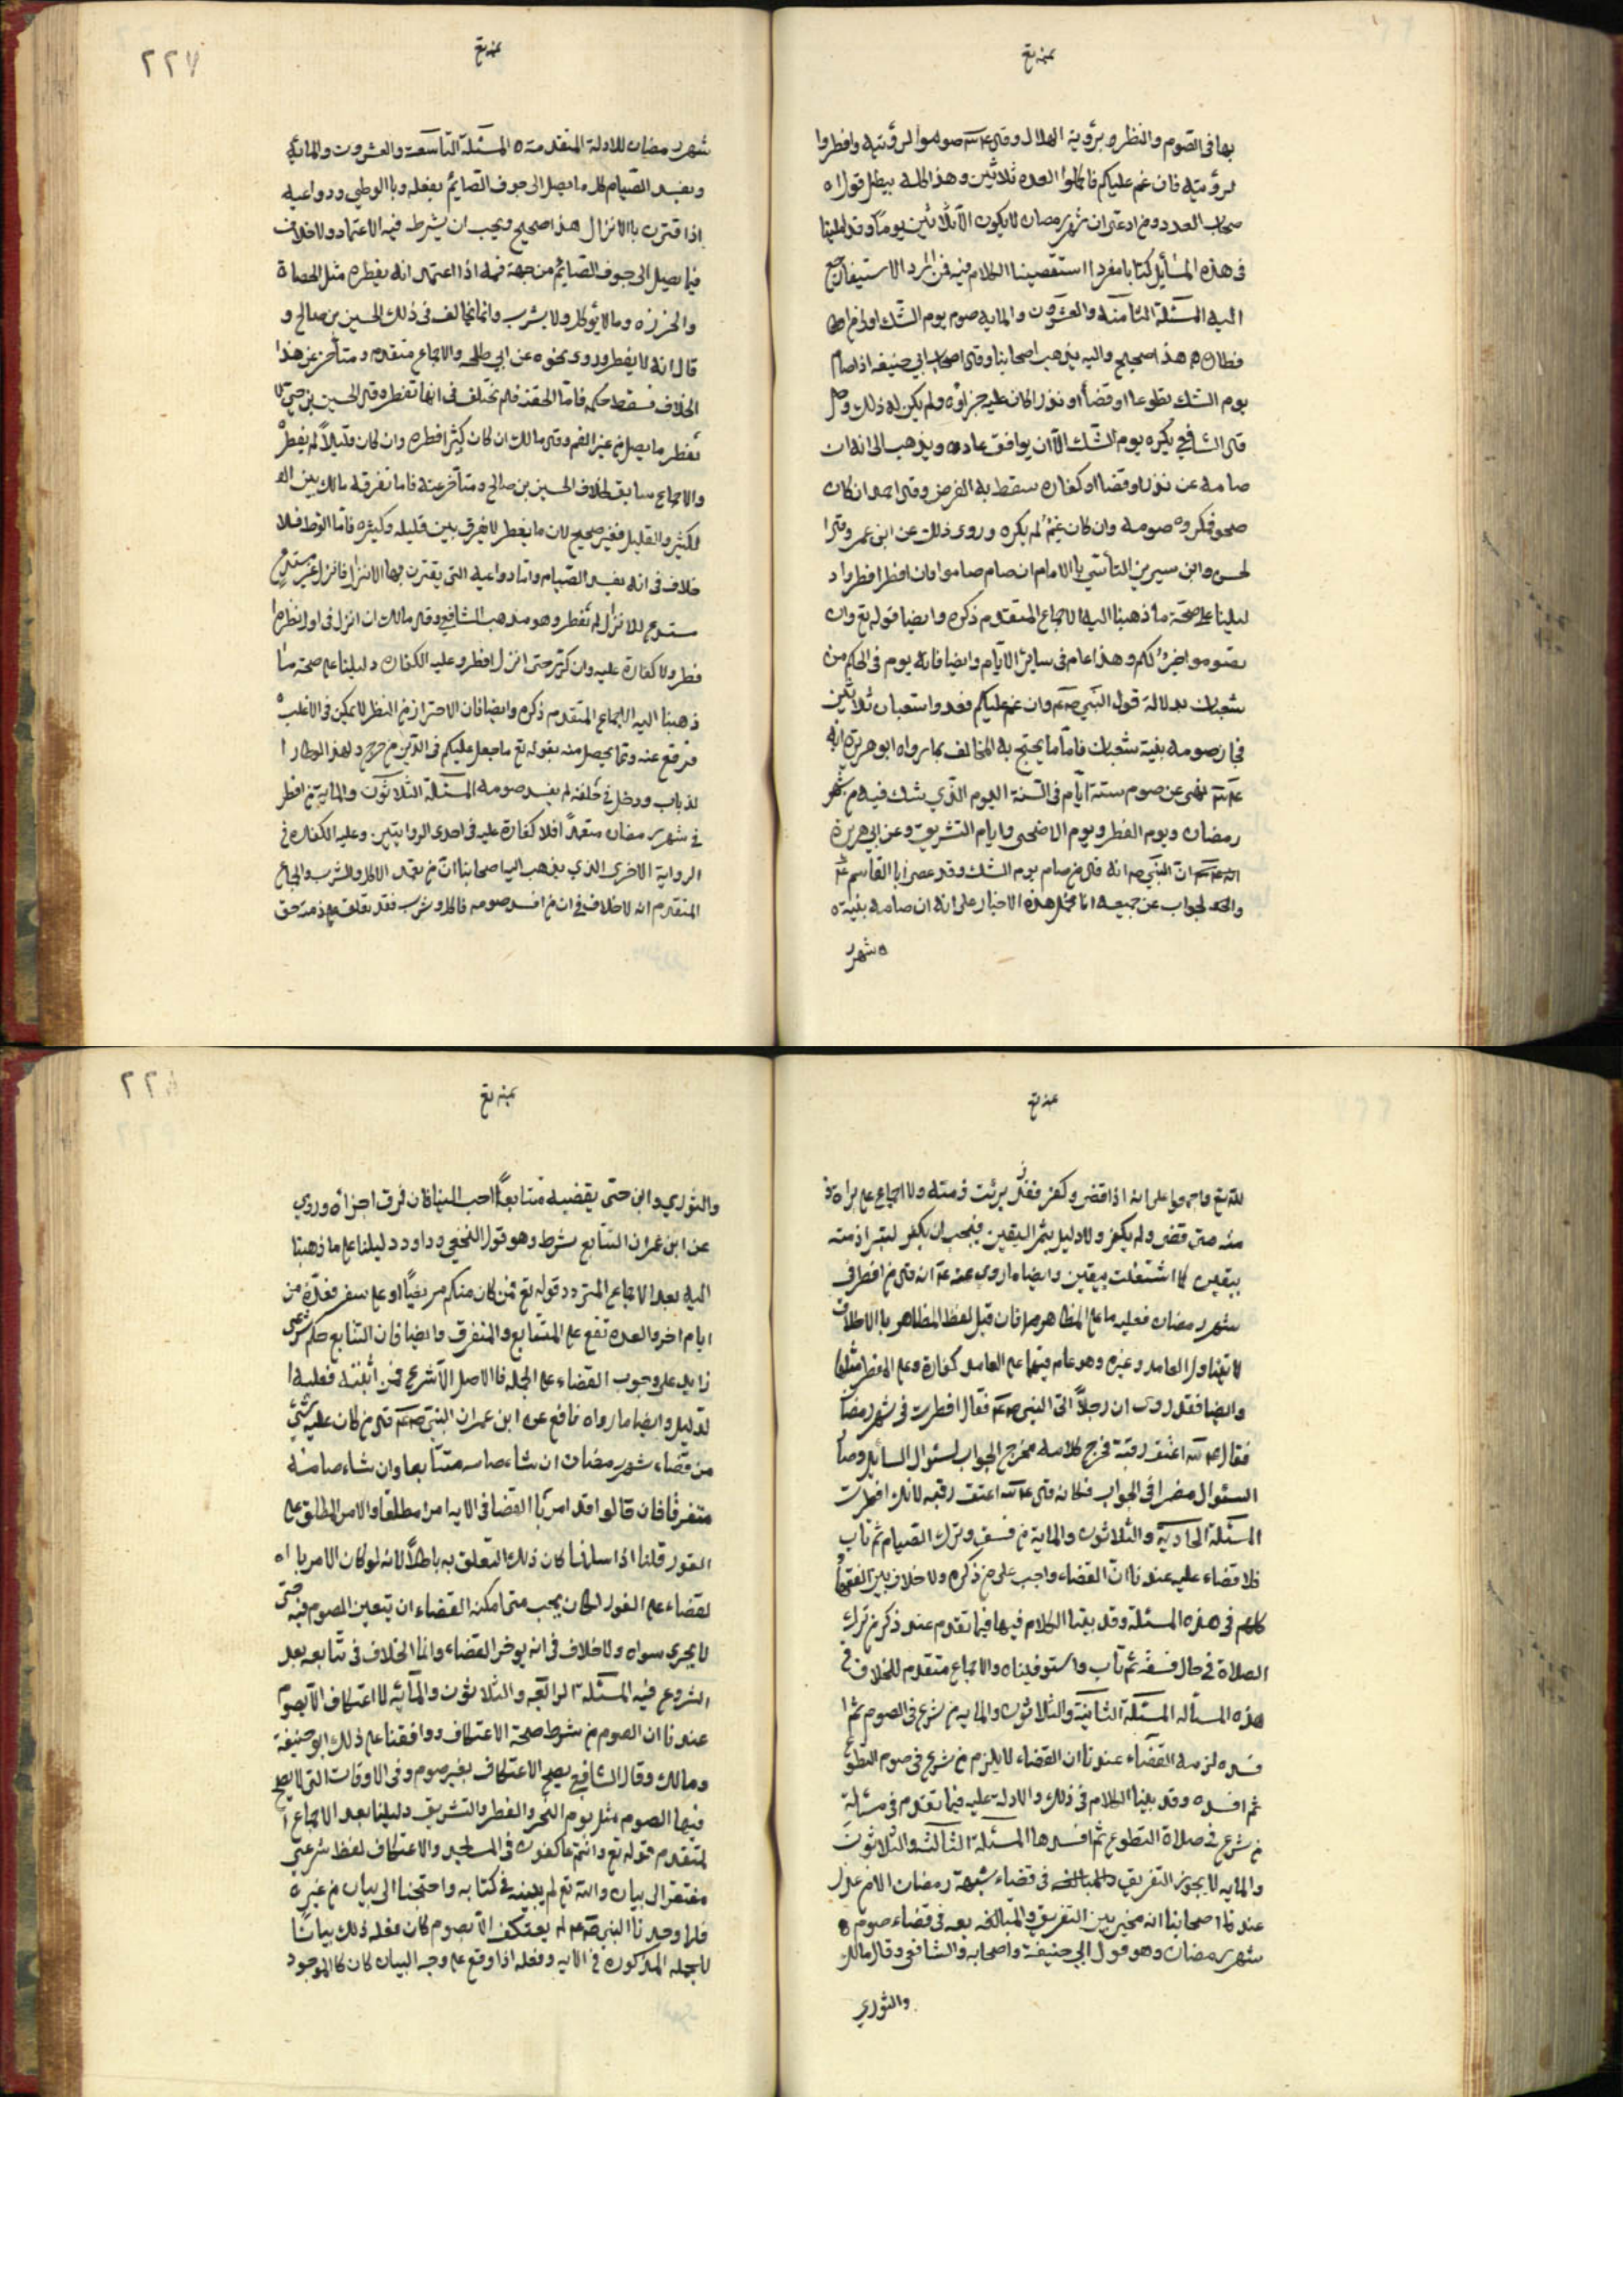 عنه تع
بها في الصوم والنظر وبرؤية الهلال وقال عليه صوموا لرؤيته وافطروا
لرؤيته فان غم عليكم فاكملوا العدة ثلاثين وهذا كله يبطل قول اه
صحاب العدد ومن ادعى ان شهر رمضان لا يكون الا ثلاثين يوما وقد املينا
في هذه المسائل كتابا مفردا استقصينا الكلام فيه فمن اراد الاستيفاء رجع
اليه المسئلة الثامنة والعشرون والمايه صوم يوم الشك اولى من
فطاره هذا صحيح واليه يذهب اصحابنا وقال اصحاب ابي حنيفه اذا صام
يوم الشك تطوعا او قضا او نذرا كان عليه جزاؤه ولم يكن له ذلك
قال الشافعي يكره يوم الشك الا ان يوافق عاده ويذهب الى انه ان
صامه عن نذر او قضا او كفاره سقط به الفرض وقال احمد ان كان
صحو فمكروه صومه وان كان غيم لم يكره وروى ذلك عن ابن عمر وقال ا
لحسن وابن سيرين التأسي با الامام ان صام صاموا وان افطر افطروا د
ليلنا على صحة ما ذهبنا اليه الاجماع المتقدم ذكره وايضا قوله تع وان
تصوموا خير لكم وهذا عام في ساير الايام وايضا فانه يوم في الحكم من
شعبان بدلالة قول النبي صعم وان غم عليكم فعدوا شعبان ثلاثين
فجاز صومه بنية شعبان فاما ما يحتج به المخالف بما رواه ابو هريرة انه
عم نهى عن صوم ستة ايام في السنة اليوم الذي يشك فيه من شهر
رمضان ويوم الفطر ويوم الاضحى وايام التشريق وعن ابي هريرة
ان النبي صم انه قال من صام يوم الشك فقد عصى ابا القاسم عم
والجواب عن جميعه انا نحمل هذه الاخبار على انه ان صامه بنية ه
ه شهر
عنه تع
٢٢٧
شهر رمضان للادلة المتقدمة ه المسئلة التاسعة والعشرون والمائه
ويفسد الصيام كل ما يصل الى جوف الصايم بفعله وبا الوطي ودواعيه
اذا قترن با الانزال هذا صحيح ويجب ان يشرط فيه الاعتماد ولا خلاف
فيما يصل الى جوف الصايم من جهة فمه اذا اعتمد انه يفطره مثل الحصاة
والخرزه وما لا يؤكل ولا يشرب وانما يخالف في ذلك الحسن بن صالح و
قال انه لا يفطر وروى نحوه عن ابي طلحه والاجماع متقدم ومتأخر عن هذا
الخلاف فسقط حكمه فاما الحقنه فلم يختلف في انها تفطره وقال الحسن بن حي لا
تفطر ما يصل من غير الفم وقال مالك ان كان كثيرا فطره وان كان قليلا لم يفطر
والاجماع سابق لخلاف الحسن بن صالح ومتأخر عنه فاما تفرقة مالك بين ا
لكثير والقليل فغير صحيح لان ما يفطر لا يفرق بين قليله وكثيره فاما الوط فلا
خلاف في انه يفسد الصيام واما دواعيه التي يقترن بها الانزال فانزل غير مستدع
ستدع للانزال لم تفطر وهو مذهب الشافعي وقال مالك ان انزل في اول نظره ا
فطر ولا كفارة عليه وان كرر حتى انزل افطر وعليه الكفاره دليلنا على صحة ما
ذهبنا اليه الاجماع المتقدم ذكره وايضا فان الاحتراز من النظر لا يمكن في الاغلب
فرفع عنه وما يحصل منه بقوله تع ما جعل عليكم في الدين من حرج ولهذا لو طار ا
لذباب ودخل في حلقه لم يفسد صومه المسئلة الثلاثون والماية من افطر
في شهر رمضان متعمدا فلا كفارة عليه في احدى الروايتين وعليه الكفاره في
الرواية الاخرى الذي يذهب اليه اصحابنا ان من تعمد الاكل والشرب والجماع
المتقدم انه لا خلاف في ان من افسد صومه فاكل وشرب فقد تعلق على ذمته حق
عنه تع
لله تع واجمعوا على انه اذا قضى وكفر فقد برئت ذمته ولا اجماع على براة ذ
مته متى قضى ولم يكفر ولا دليل يثمر اليقين فيجب ان يكفر لتبرا ذمته
بيقين كما اشتغلت بيقين وايضا ما روى عنه عم انه قال من افطر في
شهر رمضان فعليه ما على المظاهر فان قيل لفظ المظاهر با الاطلاق
لا يتناول العامد وغيره وهو عام فيهما على العامد كفارة وعلى المفطر مثلها
وايضا فقد روى ان رجلا اتى النبي صم فقال افطرت في شهر رمضان
فقال عم له اعتق رقبة فخرج كلامه مخرج الجواب لسئوال السائل وصار
السئوال مضمرا في الجواب فكانه قال عم له اعتق رقبه لانك افطرت
المسئلة الحادية والثلاثون والماية من فسق وترك الصيام ثم تاب
فلا قضاء عليه عندنا ان القضاء واجب على من ذكره ولا خلاف بين الفقهاء
كلهم في هذه المسئلة وقد بينا الكلام فيها فيما تقدم عند ذكر من ترك
الصلاة في حال فسقه ثم تاب واستوفيناه والاجماع متقدم للخلاف في
هذه المساله المسئلة الثانية والثلاثون والمايه من شرع في الصوم ثم ا
فسده لزمه القضاء عندنا ان القضاء لا يلزم من شرع في صوم التطوع
ثم افسده وقد بينا الكلام في ذلك والادلة عليه فيما تقدم في مسئلة
من شرع في صلاة التطوع ثم افسدها المسئلة الثالثة والثلاثون
والمايه لا يجوز التفريق في قضاء شهر رمضان الا من عذر
عندنا اصحابنا انه مخير بين التفريق والمتابعه في قضاء صوم ه
شهر رمضان وهو قول ابي حنيفة واصحابه والشافعي وقال مالك
والثوري
عنه تع
٢٢٨
والثوري وابن حي يقضيه متتابعا احب الينا فان فرق اجزأه وروي
عن ابن عمر ان التتابع شرط وهو قول النخعي وداود دليلنا على ما ذهبنا
اليه بعد الاجماع المتردد قوله تع فمن كان منكم مريضا او على سفر فعدة من
ايام اخر والعدة تقع على المتتابع والمتفرق وايضا فان التتابع حكم شرعي
زايد على وجوب القضاء على الجملة فا الاصل الا شرع فمن اثبته فعليه ا
لدليل وايضا ما رواه نافع عن ابن عمر ان النبي صم قال من كان عليه شيء
من قضاء شهر رمضان ان شاء صامه متتابعا وان شاء صامه
متفرقا فان قالوا قد امرنا القضا في الايه امرا مطلقا والامر المطلق على
الفور قلنا اذا سلمنا كان ذلك التعلق به باطلا لانه لو كان الامر با ا
لقضاء على الفور لكان يجب متى امكنه القضاء ان يتعين الصوم فيه حتى
لا يجزي سواه ولا خلاف في انه يوخر القضاء وانما الخلاف في تتابعه بعد
الشروع فيه المسئلة الرابعه والثلاثون والمائه لا اعتكاف الا بصوم
عندنا ان الصوم من شرط صحة الاعتكاف ووافقنا على ذلك ابو حنيفة
ومالك وقال الشافعي يصح الاعتكاف بغير صوم وفي الاوقات التي لا يصح
فيها الصوم مثل يوم النحر والفطر والتشريق دليلنا بعد الاجماع ا
لمتقدم قوله تع وانتم عاكفون في المساجد والاعتكاف لفظ شرعي
مفتقر الى بيان والله تع لم يبينه في كتابه واحتجنا الى بيان من غيره
فلما وجدنا النبي صم لم يعتكف الا بصوم كان فعله ذلك بيانا
للجملة المذكوره في الايه وفعله اذا وقع على وجه البيان كان كا الموجود